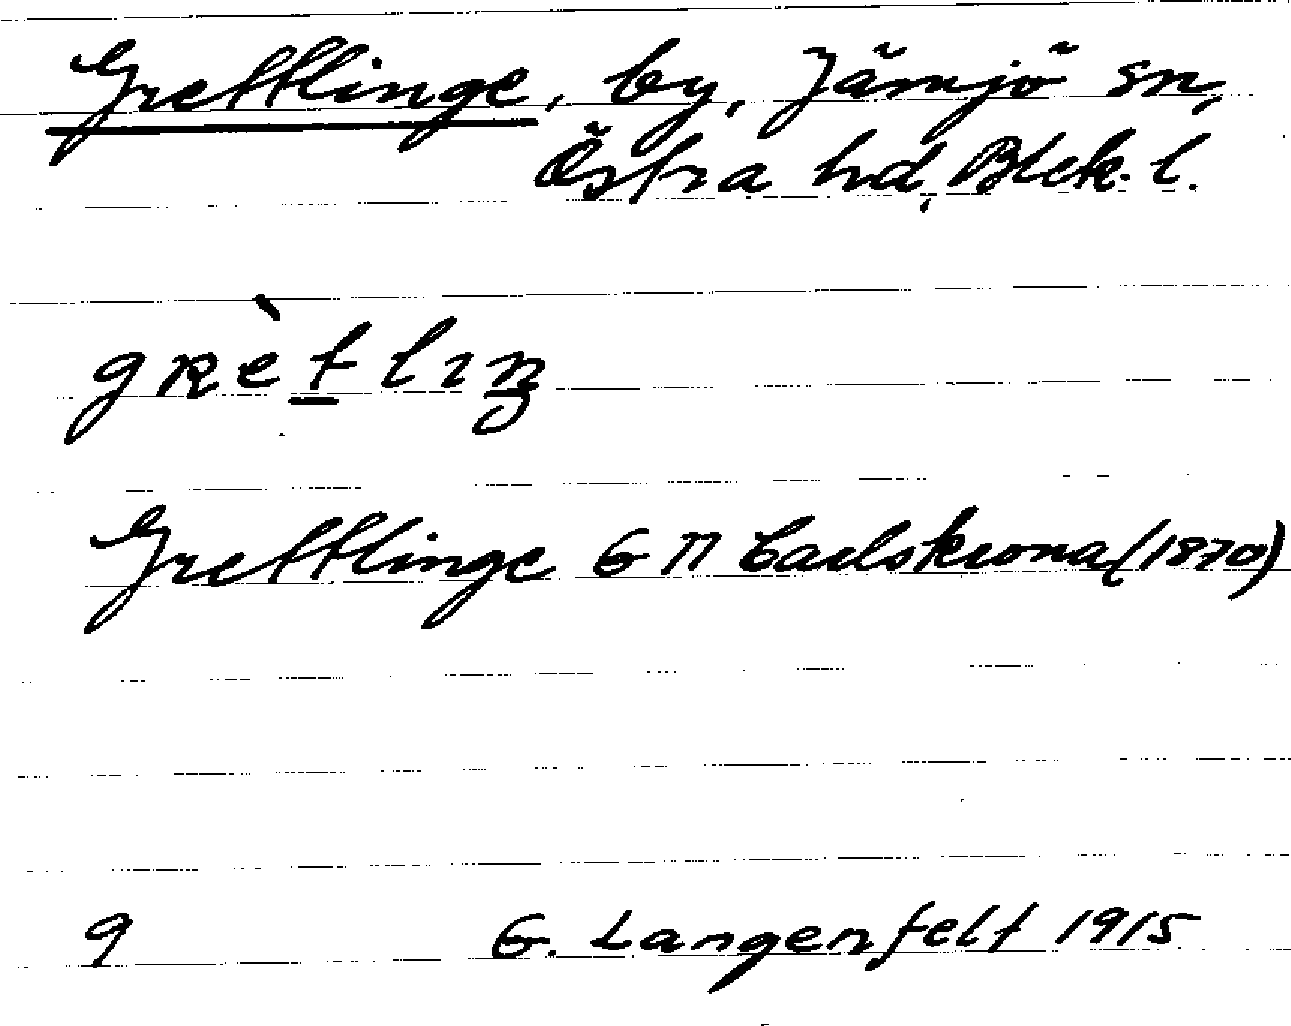 Grettlinge, by, Jämjö sn,
Östra hd, Blek. l.
grètlıŋ
Grettlinge GΠ Carlskrona (1870)
9 G. Langenfelt 1915